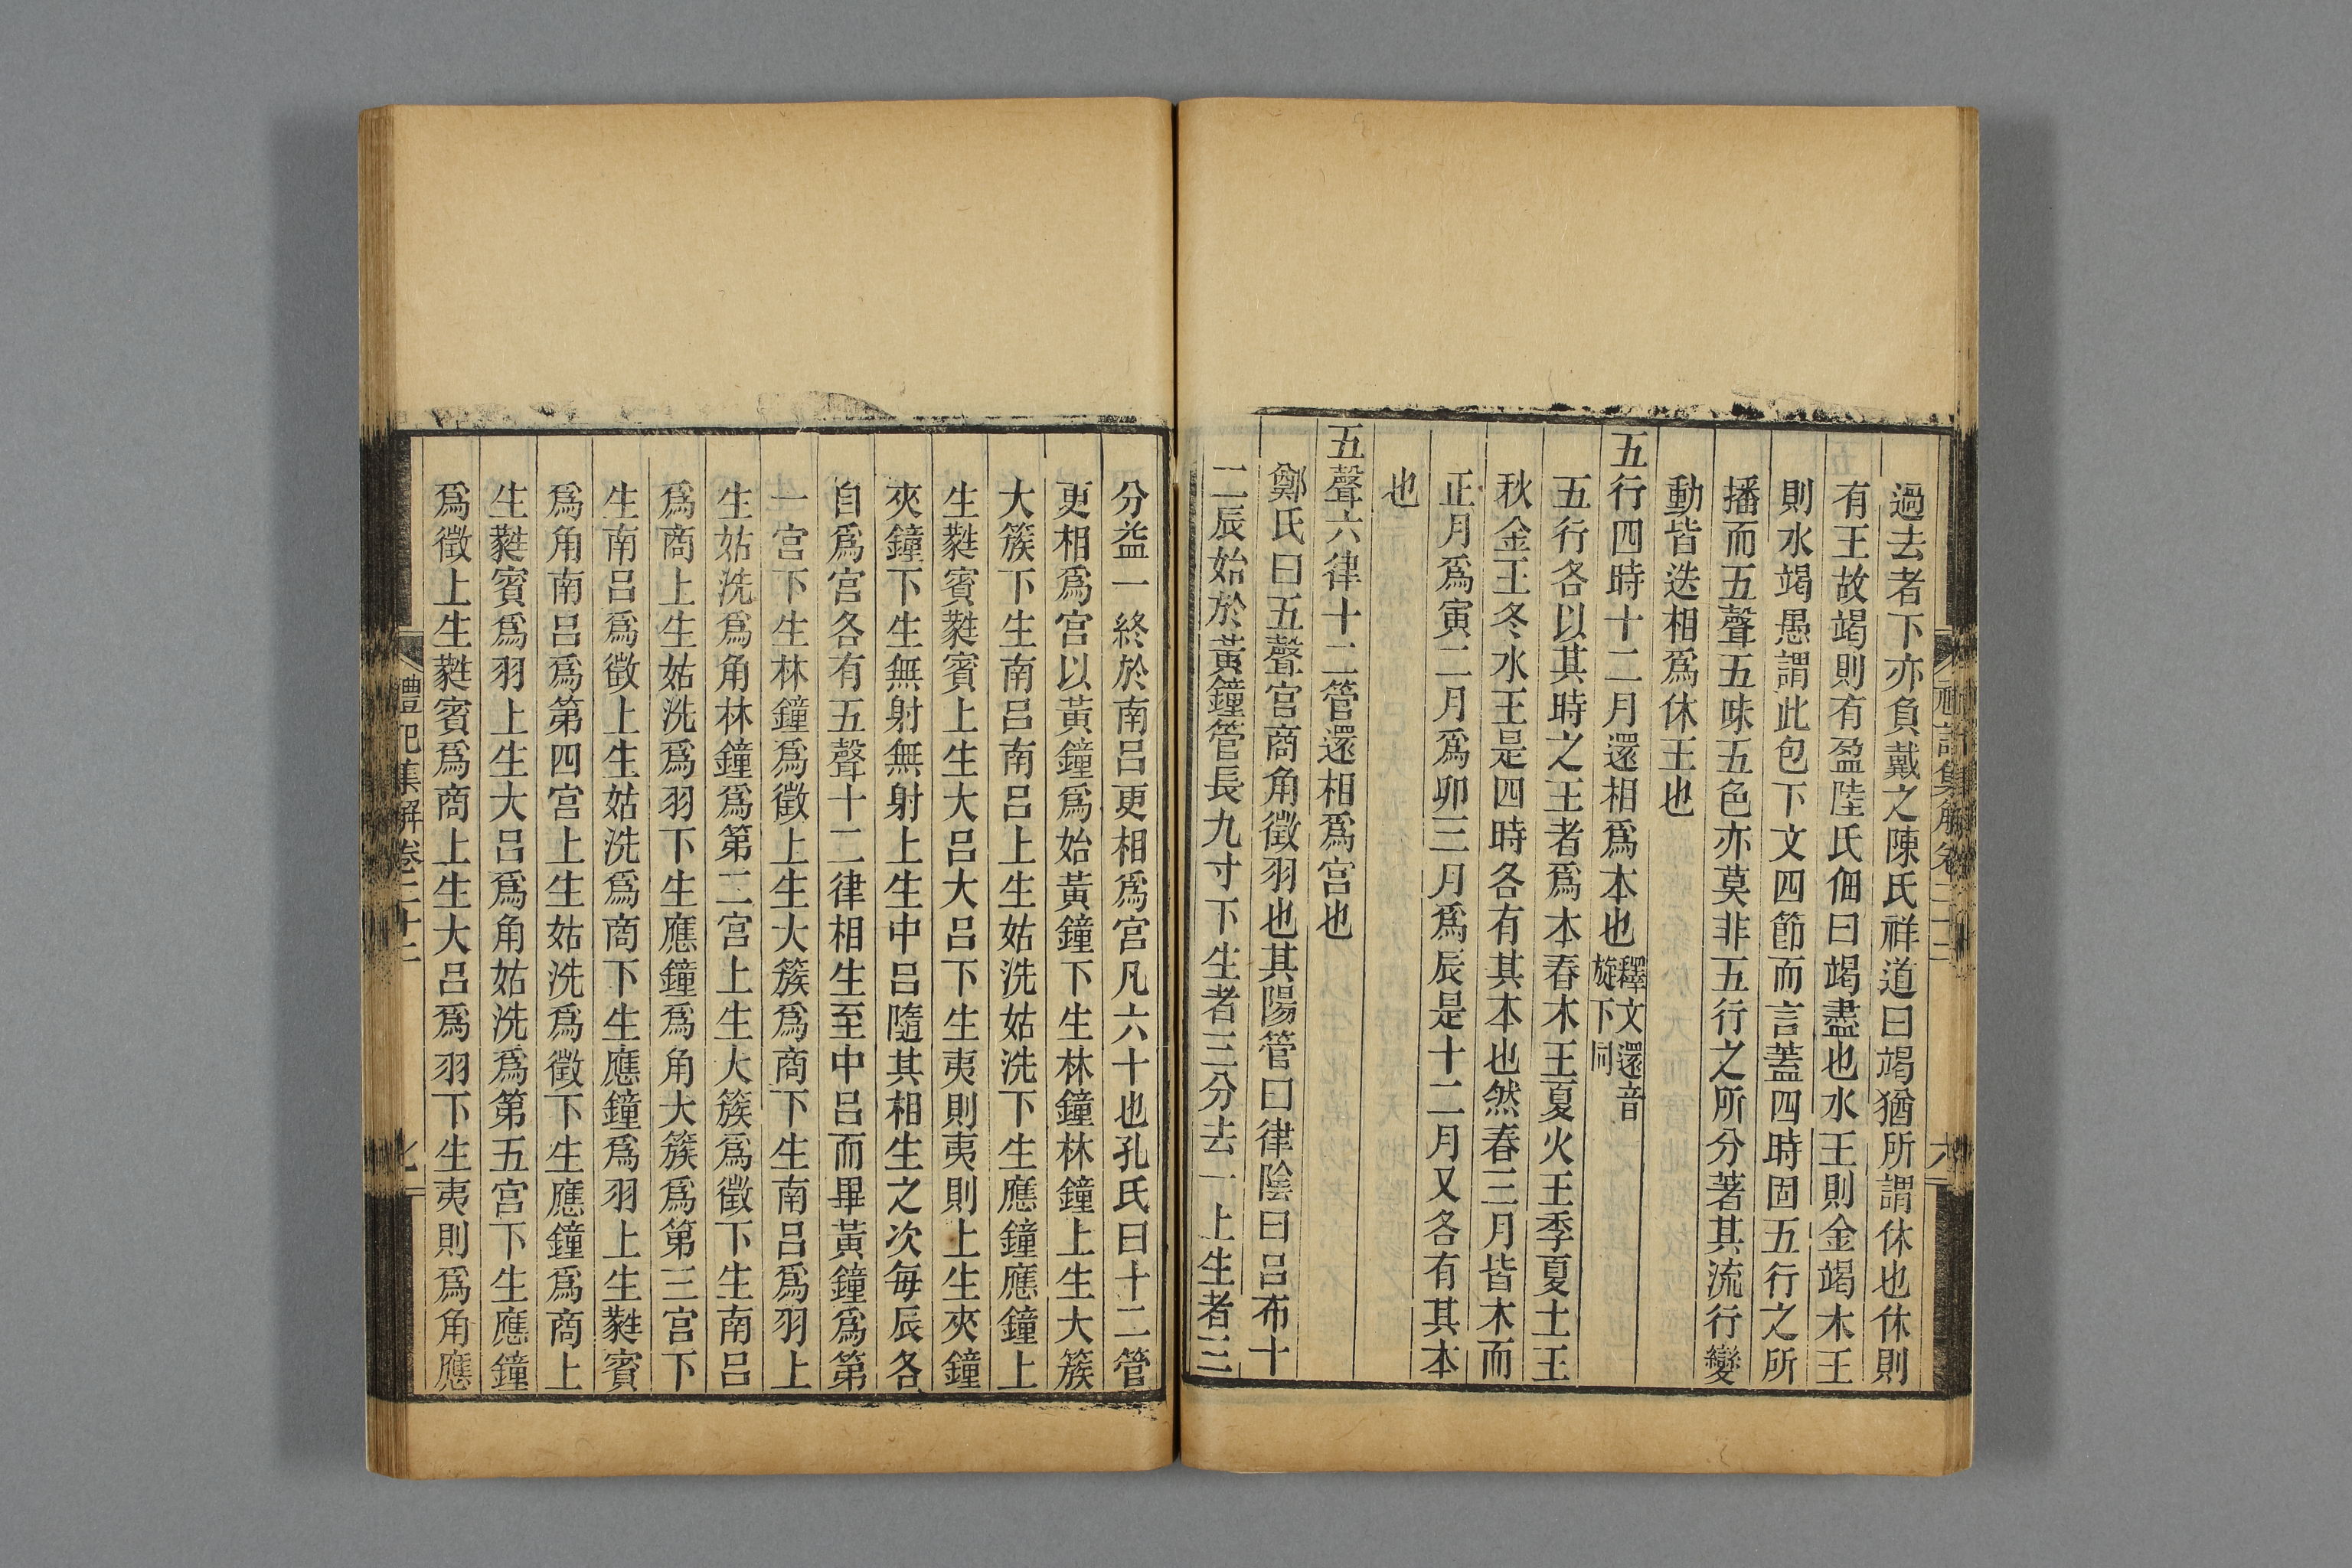 過去者下亦負戴之陳氏祥道曰竭猶所謂休也休則
有王故竭則有盈陸氏佃曰竭盡也水王則金竭木王
則水竭愚謂此包下文四節而言蓋四時固五行之所
播而五聲五味五色亦莫非五行之所分著其流行變
動皆迭相爲休王也
五行四時十二月還相爲本也釋文還音
旋下同
五行各以其時之王者爲本春木王夏火王季夏土王
秋金王冬水王是四時各有其本也然春三月皆木而
正月爲寅二月爲卯三月爲辰是十二月又各有其本
也
五聲六律十二管還相爲宮也
鄭氏曰五聲宮商角徵羽也其陽管曰律陰曰呂布十
二辰始於黃鐘管長九寸下生者三分去一上生者三
分益一終於南呂更相爲宮凡六十也孔氏曰十二管
更相爲宮以黃鐘爲始黃鐘下生林鐘林鐘上生大簇
大簇下生南呂南呂上生姑洗姑洗下生應鐘應鐘上
生蕤賓蕤賓上生大呂大呂下生夷則夷則上生夾鐘
夾鐘下生無射無射上生中呂隨其相生之次每辰各
自爲宮各有五聲十二律相生至中呂而畢黃鐘爲第
一宮下生林鐘爲徵上生大簇爲商下生南呂爲羽上
生姑洗爲角林鐘爲第二宮上生大簇爲徵下生南呂
爲商上生姑洗爲羽下生應鐘爲角大簇爲第三宮下
生南呂爲徵上生姑洗爲商下生應鐘爲羽上生蕤賓
爲角南呂爲第四宮上生姑洗爲徵下生應鐘爲商上
生蕤賓爲羽上生大呂爲角姑洗爲第五宮下生應鐘
爲徵上生蕤賓爲商上生大呂爲羽下生夷則爲角應
禮記集解卷二十二